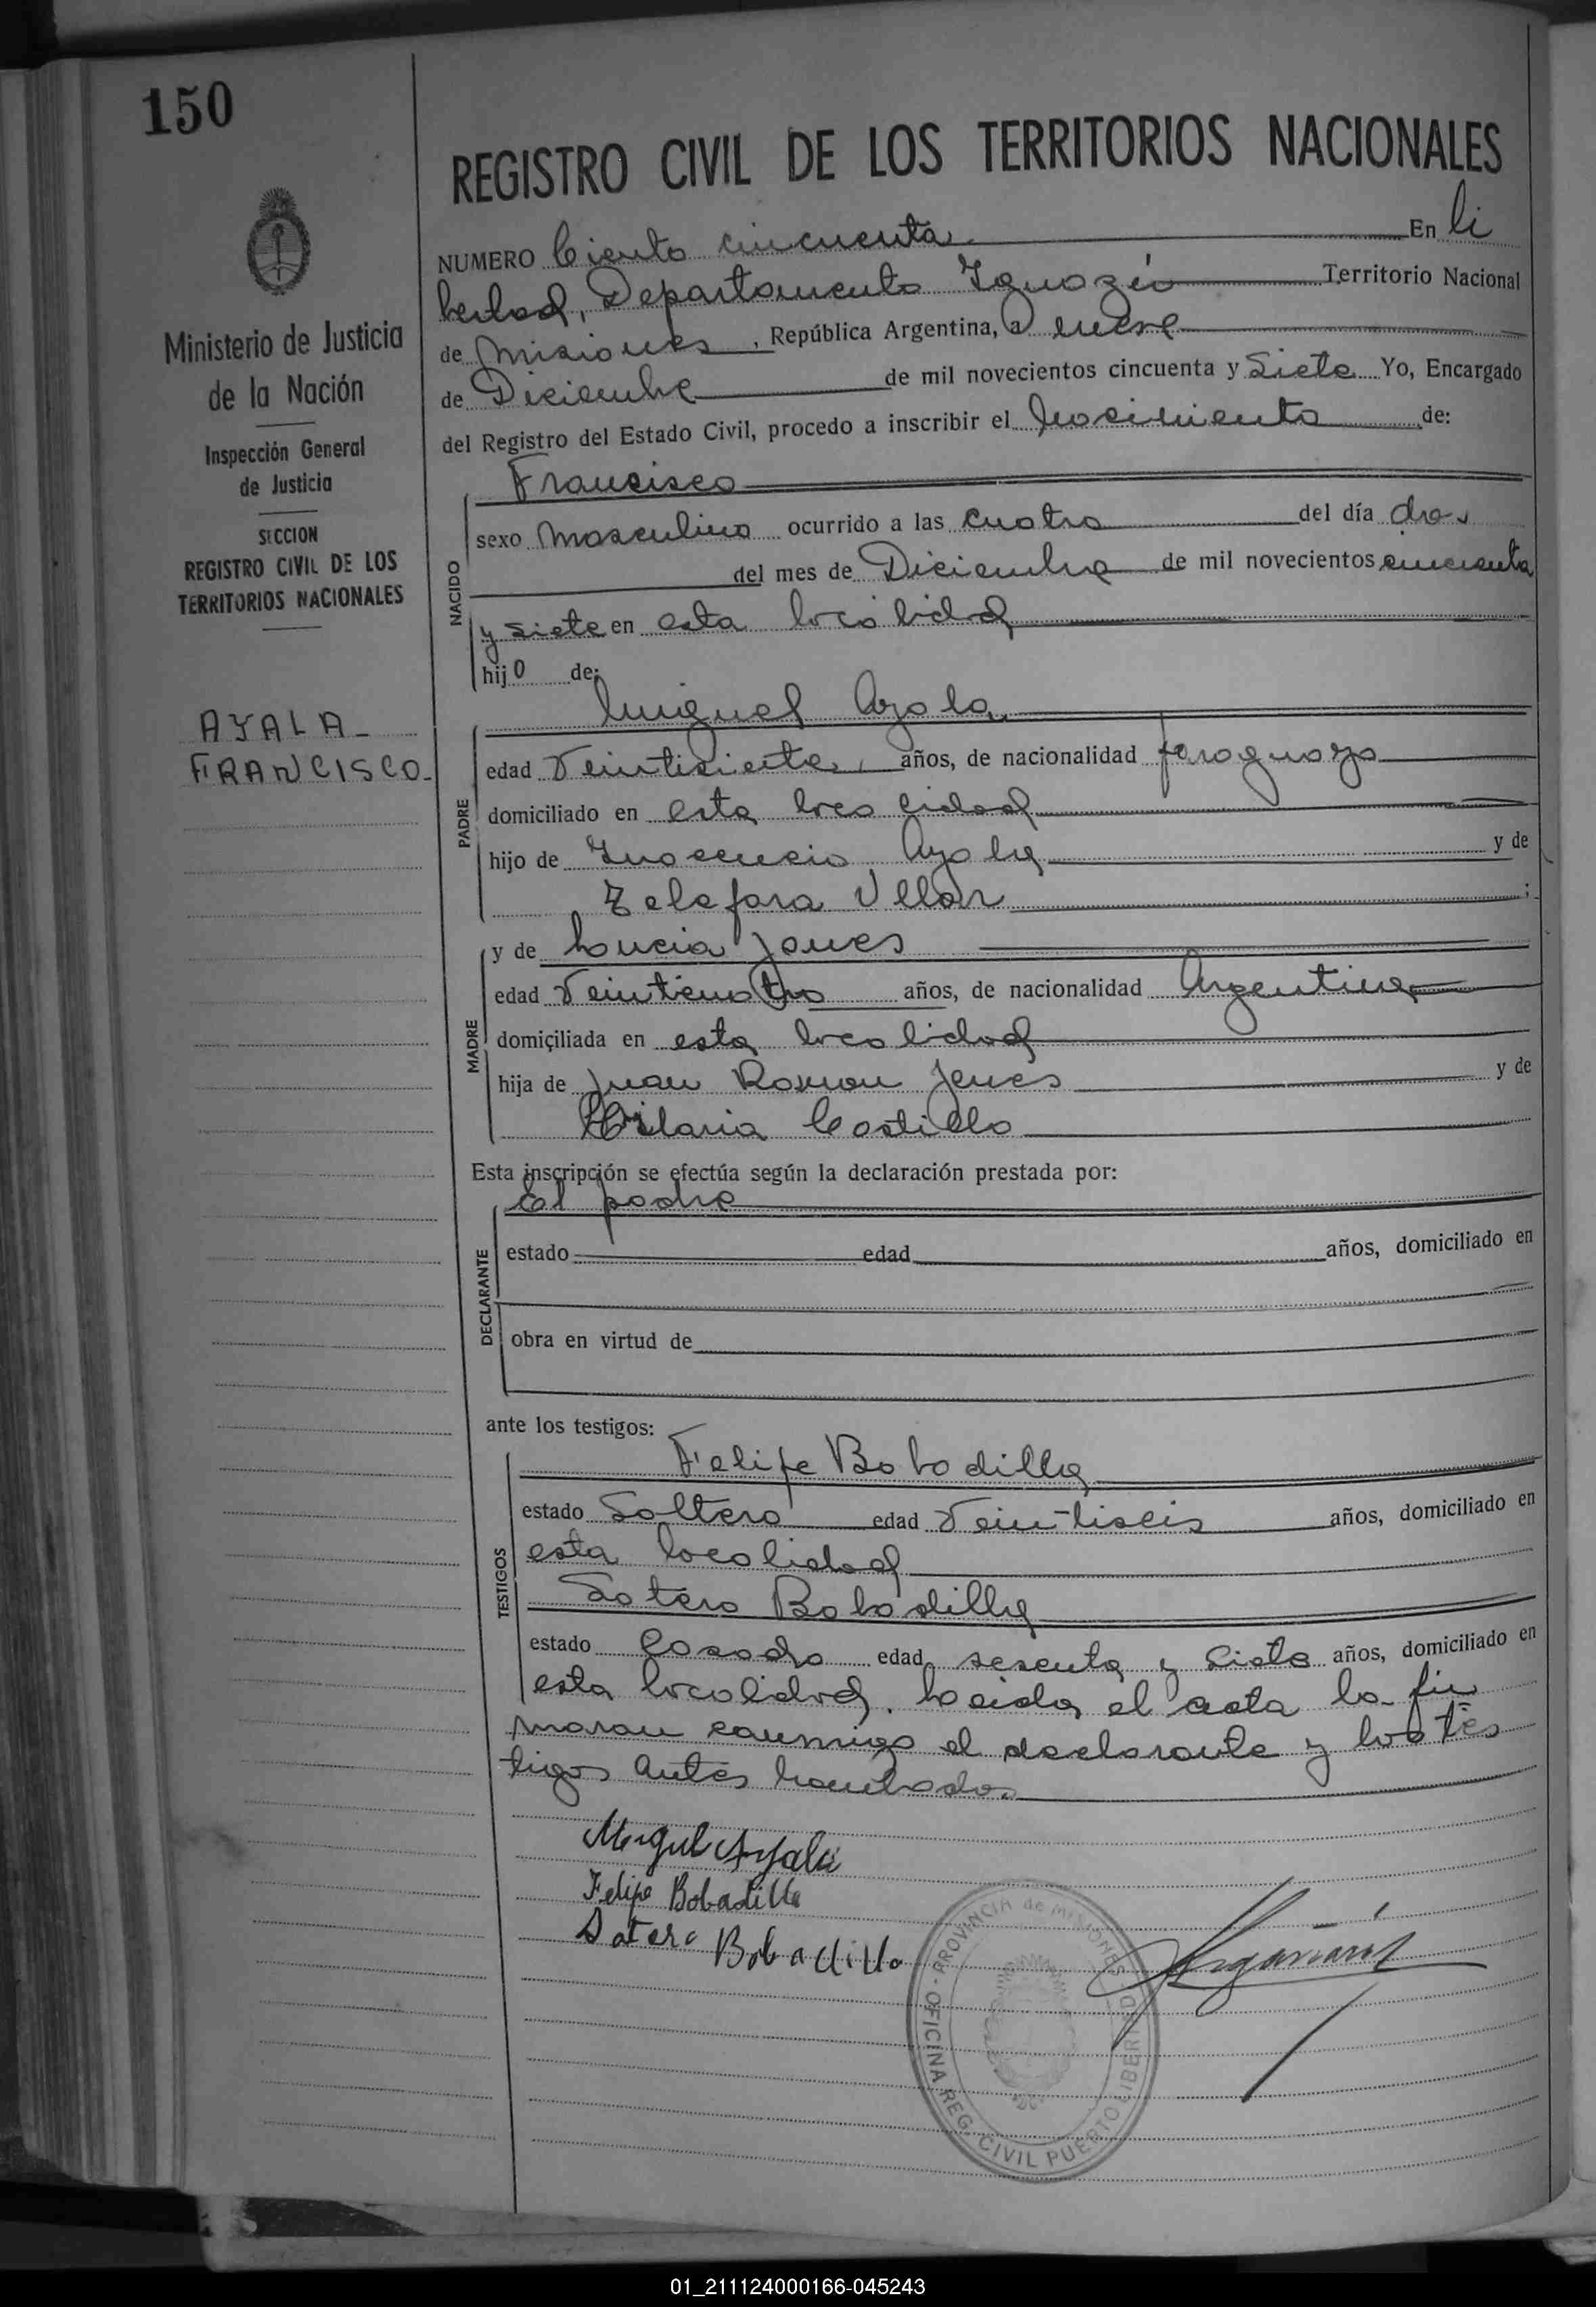 150
REGISTRO CIVIL DE LOS TERRITORIOS NACIONALES
Ministerio de Justicia
de la Nación
Inspección General
de Justicia
SECCION
REGISTRO CIVIL DE LOS
TERRITORIOS NACIONALES
AYALA
FRANCISCO
NUMERO Ciento cincuenta En Li
bertad, Departamento Iguazú Territorio Nacional
de Misiones, República Argentina, a nueve
de Diciembre de mil novecientos cincuenta y Siete Yo, Encargado
del Registro del Estado Civil, procedo a inscribir el Nacimiento de:
Francisco
NACIDO
sexo Masculino ocurrido a las cuatro del día dos
del mes de Diciembre de mil novecientos cincuenta
y siete en esta localidad
hijo de:
Miguel Ayala
PADRE
edad Veintisiete años, de nacionalidad paraguaya
domiciliado en esta localidad
hijo de Inocencio Ayala y de
Telefora Villar;
y de Lucia Jones
MADRE
edad Veinticuatro años, de nacionalidad Argentina
domiciliada en esta localidad
hija de Juan Ramon y de
Hilaria Castillo
Esta inscripción se efectúa según la declaración prestada por:
El padre
DECLARANTE
estado edad años, domiciliado en
obra en virtud de
ante los testigos:
Felipe Bobadilla
TESTIGOS
estado Soltero edad Veintiseis años, domiciliado en
esta localidad
Sotero Bobadilla
estado Casado edad sesenta y Siete años, domiciliado en
esta localidad. Leida el acta la fir
maron conmigo el declarante y los tes
tigos antes nombrados
Miguel Ayala
Felipe Bobadilla
Sotero Bobadilla
PROVINCIA de MISIONES
OFICINA REG. CIVIL PUERTO LIBERTAD
01_211124000166-045243